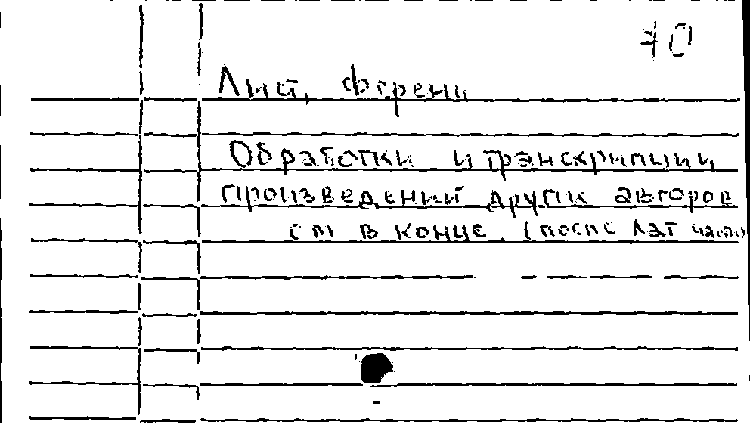 70
Лист, Ференц
Обработки и транскрипции
произведений других авторов
см в конце. (после лат части)